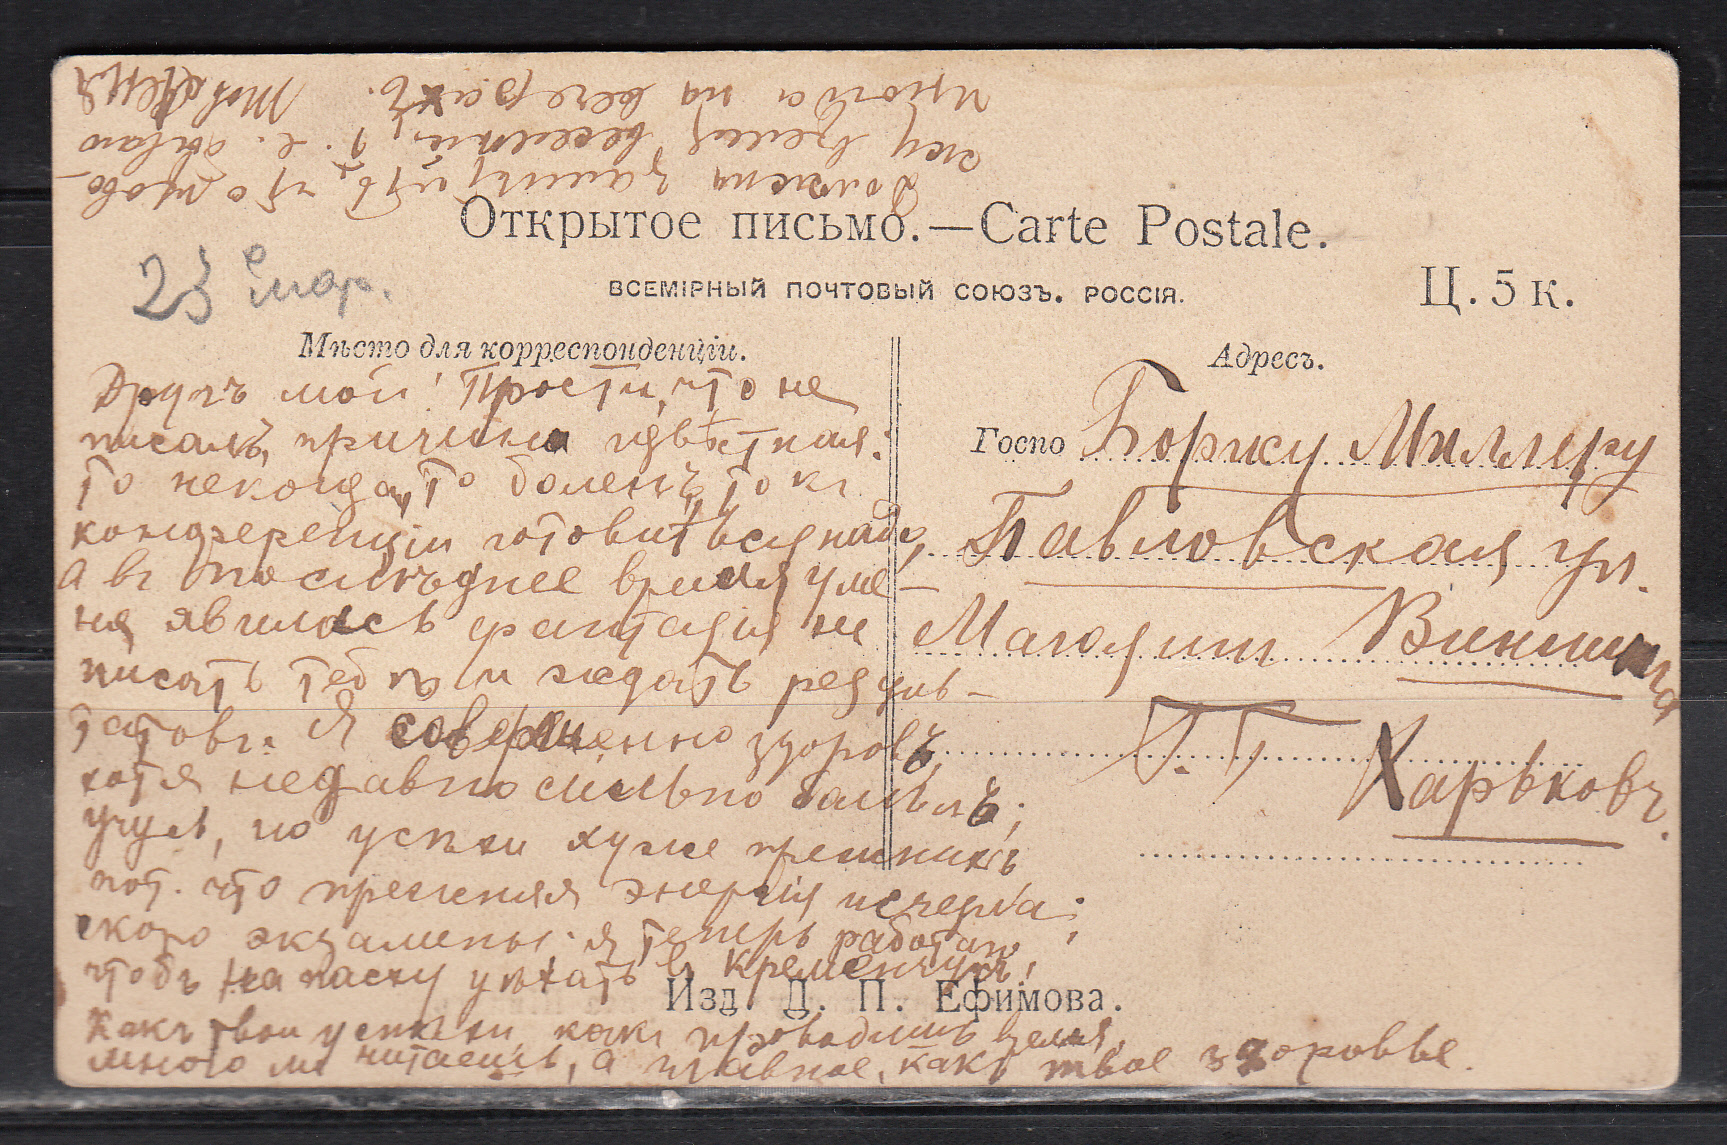 Открытое письмо.—Carte Postale.
ВСЕМІРНЫЙ ПОЧТОВЫЙ СОЮЗЪ. РОССІЯ.
Ц. 5 к.
23 мар.
Мѣсто для корреспонденціи.
Другъ мой! Прости, что не
писалъ, причина извѣстная:
то некогда, то боленъ, то къ
конференціи готовиться надо,
а въ послѣднее время у ме-
ня явилась фантазія не
писать тебѣ и ждать резуль-
татовъ. Я совершенно здоровъ,
хотя недавно сильно болѣлъ;
учусь, но успѣхи хуже прежнихъ
пот. что прежняя энергія исчезла;
скоро экзамены. я теперь работаю
чтобъ на пасху уѣхать въ Кременчугъ!
Какъ твои успѣхи, какъ проводишь время,
много ли читаешь, а главное, какъ твое здоровье.
Должен замѣтить, что прово-
жу время весело, т. е. бываю
иногда на вечерахъ. Твой Женя
Адресъ.
Госпо Борису Миллеру
Павловская ул.
Магазин
Г. Г. Харьковъ.
Изд. Д. П. Ефимова.